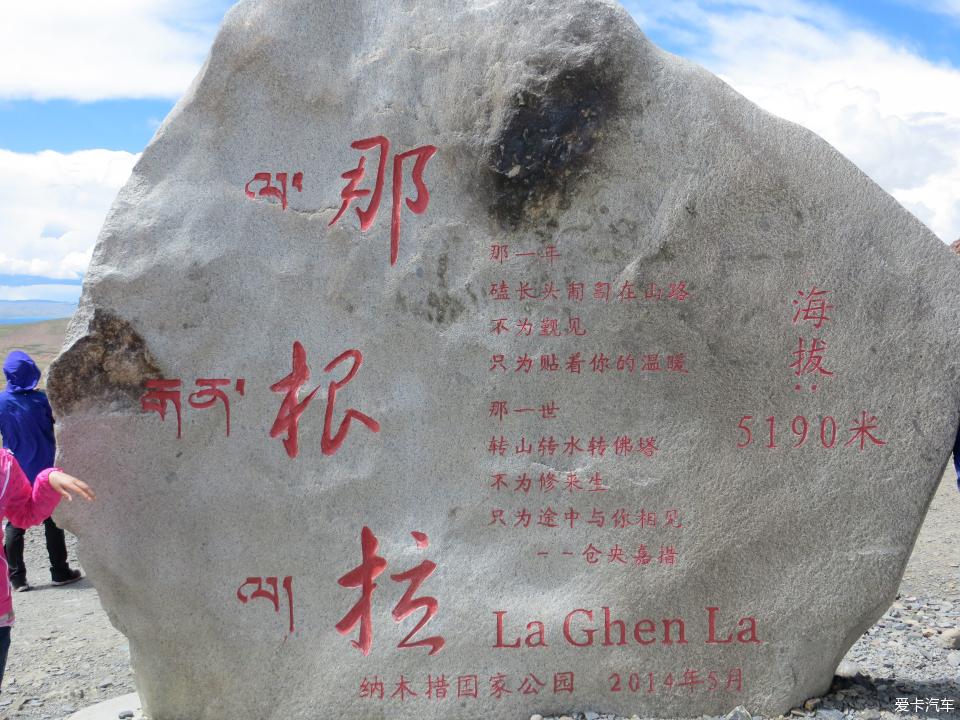 ལ་
那
根
ལ།
拉
那一年
磕长头匍匐在山路
不为觐见
只为贴着你的温暖
那一世
转山转水转佛塔
不为修来生
只为途中与你相见
--仓央嘉措
海
拔:
5190米
La Ghen La
纳木措国家公园 2014年5月
爱卡汽车